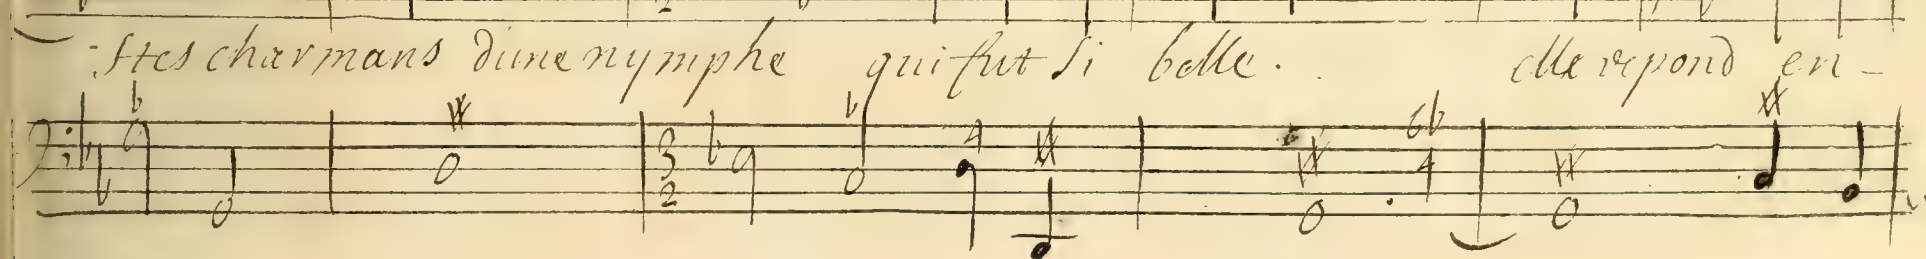 -stes charmans d'une nymphe qui fut si belle. elle repond en-